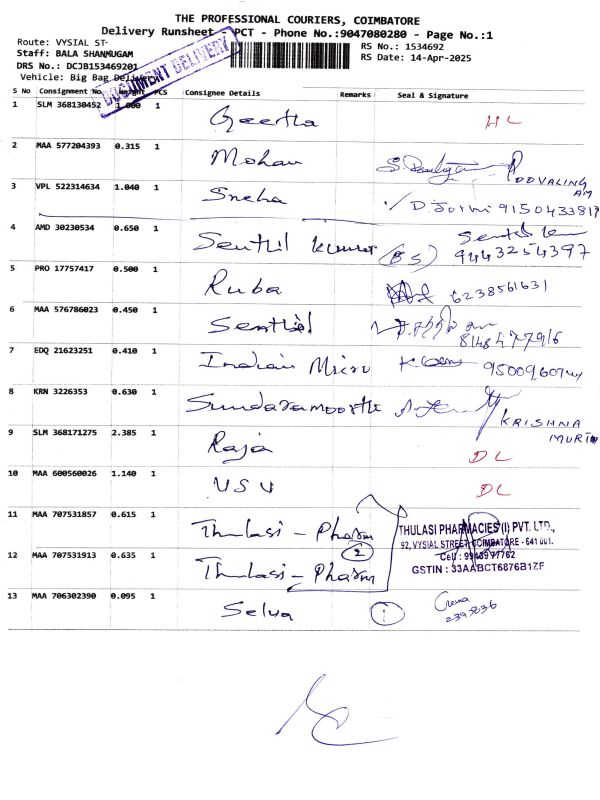 THE PROFESSIONAL COURIERS, COIMBATORE
Delivery Runsheet - PCT - Phone No.:9047080280 - Page No.:1
Route: VYSIAL ST-
Staff: BALA SHANMUGAM
DRS No.: DCJB153469201
Vehicle: Big Bag Delivery
DOCUMENT DELIVERY
RS No.: 1534692
RS Date: 14-Apr-2025
S No Consignment No. Weight PCS Consignee Details Remarks Seal & Signature
1 SLM 368130452 1.000 1 Geertha HL
2 MAA 577204393 0.315 1 Mohan
3 VPL 522314634 1.040 1 Sneha
4 AMD 30230534 0.650 1 Senthil Kumar (BS) 9443254397
5 PRO 17757417 0.500 1 Ruba 6238561631
6 MAA 576786023 0.450 1 Senthil
7 EDQ 21623251 0.410 1 Indian Micro
8 KRN 3226353 0.630 1 Sundaramoorthi KRISHNA
9 SLM 368171275 2.385 1 Raja DL
10 MAA 600560026 1.140 1 USV DL
11 MAA 707531857 0.615 1 Thulasi - Pharm
2
12 MAA 707531913 0.635 1 Thulasi - Pharm
THULASI PHARMACIES (I) PVT. LTD.,
92, VYSIAL STREET, COIMBATORE - 641 001.
Cell :
GSTIN : 33AABCT6876B1ZF
13 MAA 706302390 0.095 1 Selva 1